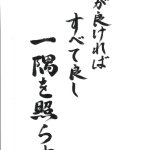 が良ければ
すべて良し
一隅を照らす